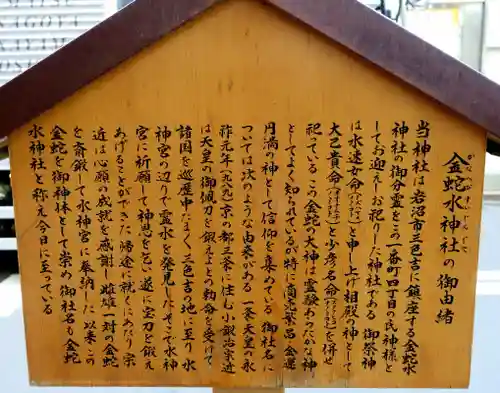 金蛇水神社の御由緒
当神社は岩沼市三色吉に鎮座する金蛇水
神社の御分霊をこの一番町四丁目の氏神様と
してお迎えしお祀りした神社である 御祭神
は水速女命と申し上げ相殿の神として
大己貴命と少彦名命を併せ
祀っている この金蛇の大神は霊験あらたかな神
としてよく知られているが特に商売繁昌・金運
円満の神として信仰を集めている 御社名に
ついては次のような由来がある 一条天皇の永
祚元年(九八九)京の都三条に住む小鍛冶宗近
は天皇の御佩刀を鍛えよとの勅命を受けて
諸国を巡歴中たまく三色吉の地に至り 水
神宮の辺りで霊水を発見した そこで水神
宮に祈願して神恩を乞い遂に宝刀を鍛え
あげることができた 帰途に就くにあたり 宗
近は心願の成就を感謝し雌雄一対の金蛇
を斎鍛して水神宮に奉納した 以来この
金蛇を御神体として崇め 御社名も金蛇
水神社と称え今日に至っている